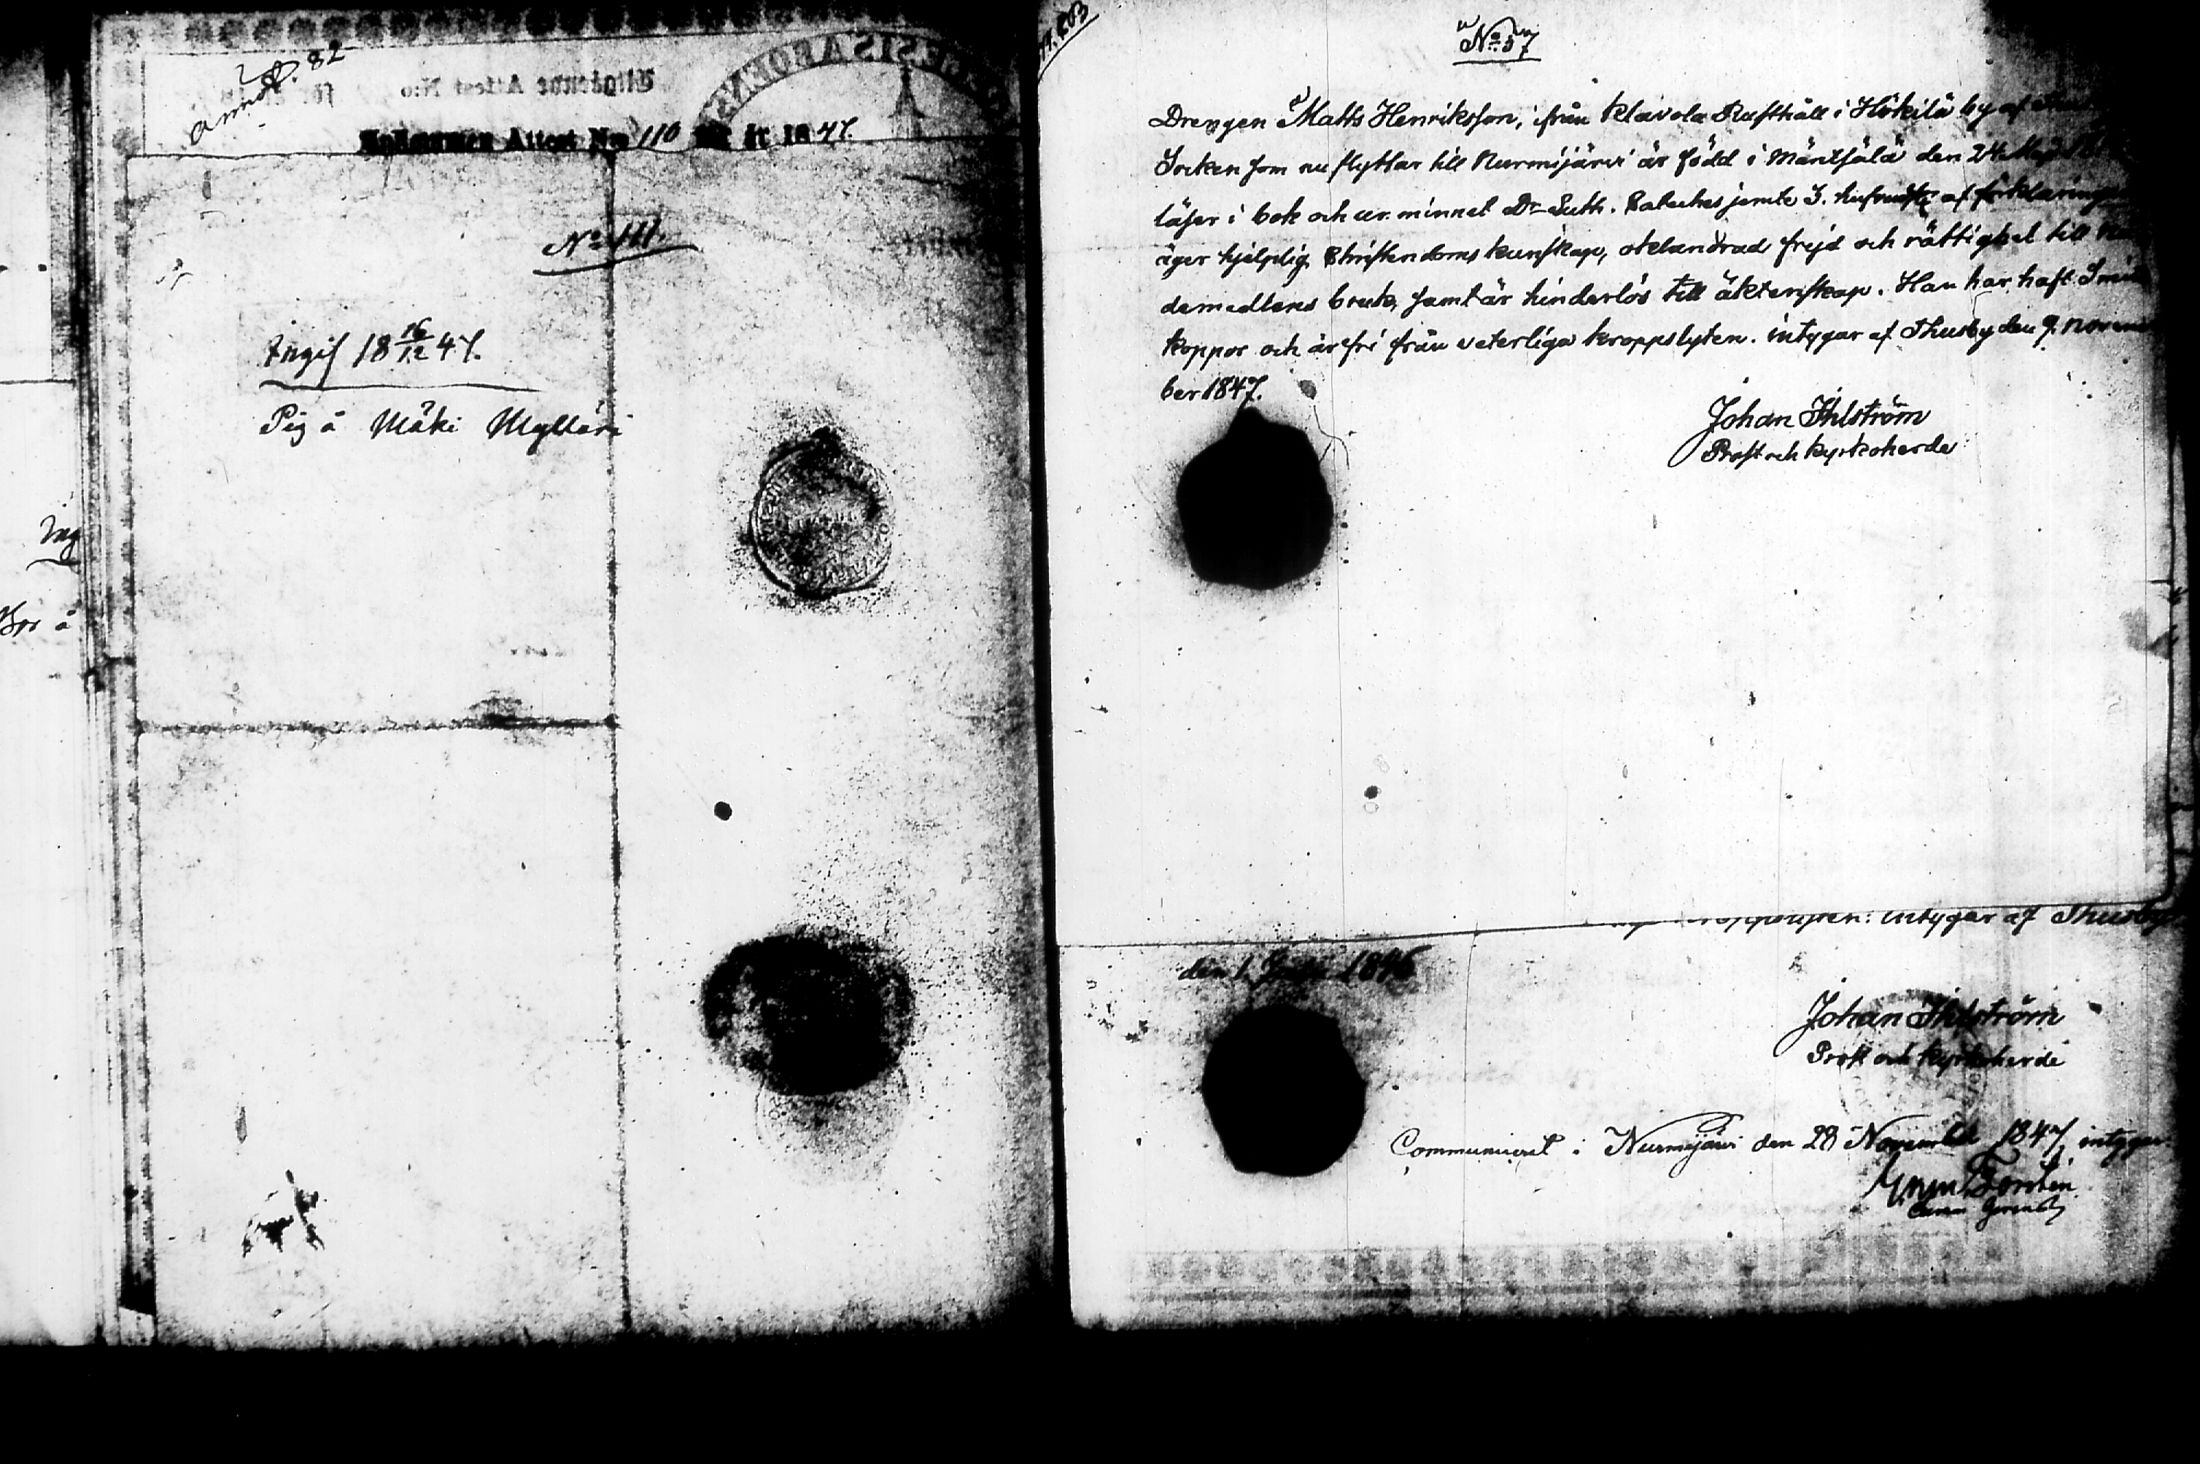 82
Inkommen Attest N:o 110 för år 1847.
No 111.
Angif 18 16/12 47.
Pig å Mäki Mylläri
Ing
å
No 57
Drengen Matts Henriksson, ifrån Klavola Rusthåll i Hökilä by af
Socken som nu flyttar till Nurmijärvi är född i Mäntsälä den 24 Maji
läser i bok och ur minnet Dr Luth. Cateches jemte af förklaringen
äger hjelplig Christendoms kunskap, oklandrad frejd och rättighet till
demedlens bruk, samt är hinderlös till äktenskap. Han har haft
koppor och är fri från veterliga kroppslyten. intygar af Thusby den 9. Novem
ber 1847.
Johan Ihlström
Prost och kyrkoherde
kroppslyten: intygar af Thusby
den 1. 1846
Johan Ihlström
Prost och kyrkoherde
Communicerat i Nurmijärvi den 28 November 1847 intygar
Forstén